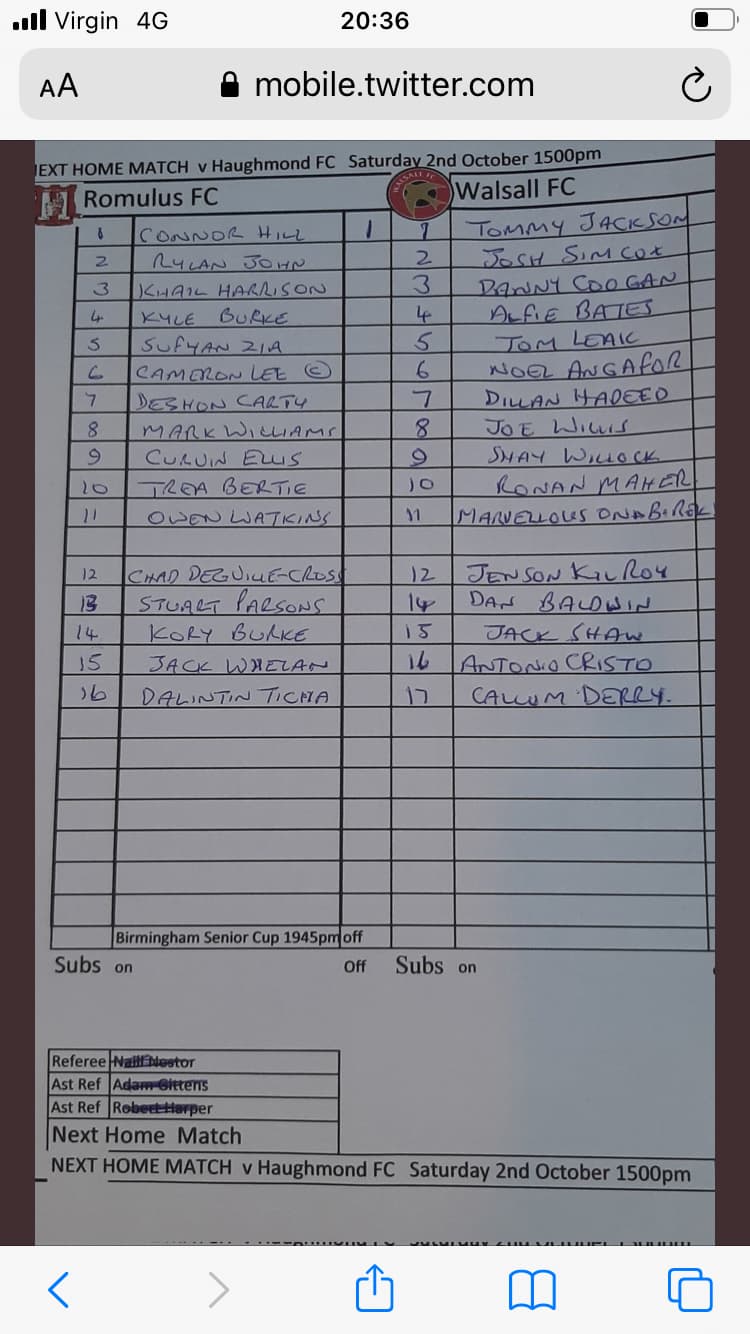 Virgin 4G 20:36
AA mobile.twitter.com
EXT HOME MATCH v Haughmond FC Saturday 2nd October 1500pm
Romulus FC WALSALL FC Walsall FC
1 CONNOR HILL 1 1 TOMMY JACKSON
2 RYLAN JOHN 2 JOSH SIMCOX
3 KHAIL HARRISON 3 DANNY COOGAN
4 KYLE BURKE 4 ALFIE BATES
5 SUFYAN ZIA 5 TOM LEAK
6 CAMERON LEE © 6 NOEL ANGAFOR
7 DESHON CARTY 7 DILLAN HADEED
8 MARK WILLIAMS 8 JOE WILLIS
9 CURVIN ELLIS 9 SHAY WILLOCK
10 TREA BERTIE 10 RONAN MAHER
11 OWEN WATKINS 11 MARVELLOUS
12 CHAD DEGVILLE-CROSS 12 JENSON KILROY
13 STUART PARSONS 14 DAN BALDWIN
14 KORY BURKE 15 JACK SHAW
15 JACK WHELAN 16 ANTONIO CRISTO
16 DALINTIN TICHA 17 CALLUM DERRY.
Birmingham Senior Cup 1945pm off
Subs on Off Subs on
Referee Naill Nestor
Ast Ref Adam Gittens
Ast Ref Robert Harper
Next Home Match
NEXT HOME MATCH v Haughmond FC Saturday 2nd October 1500pm